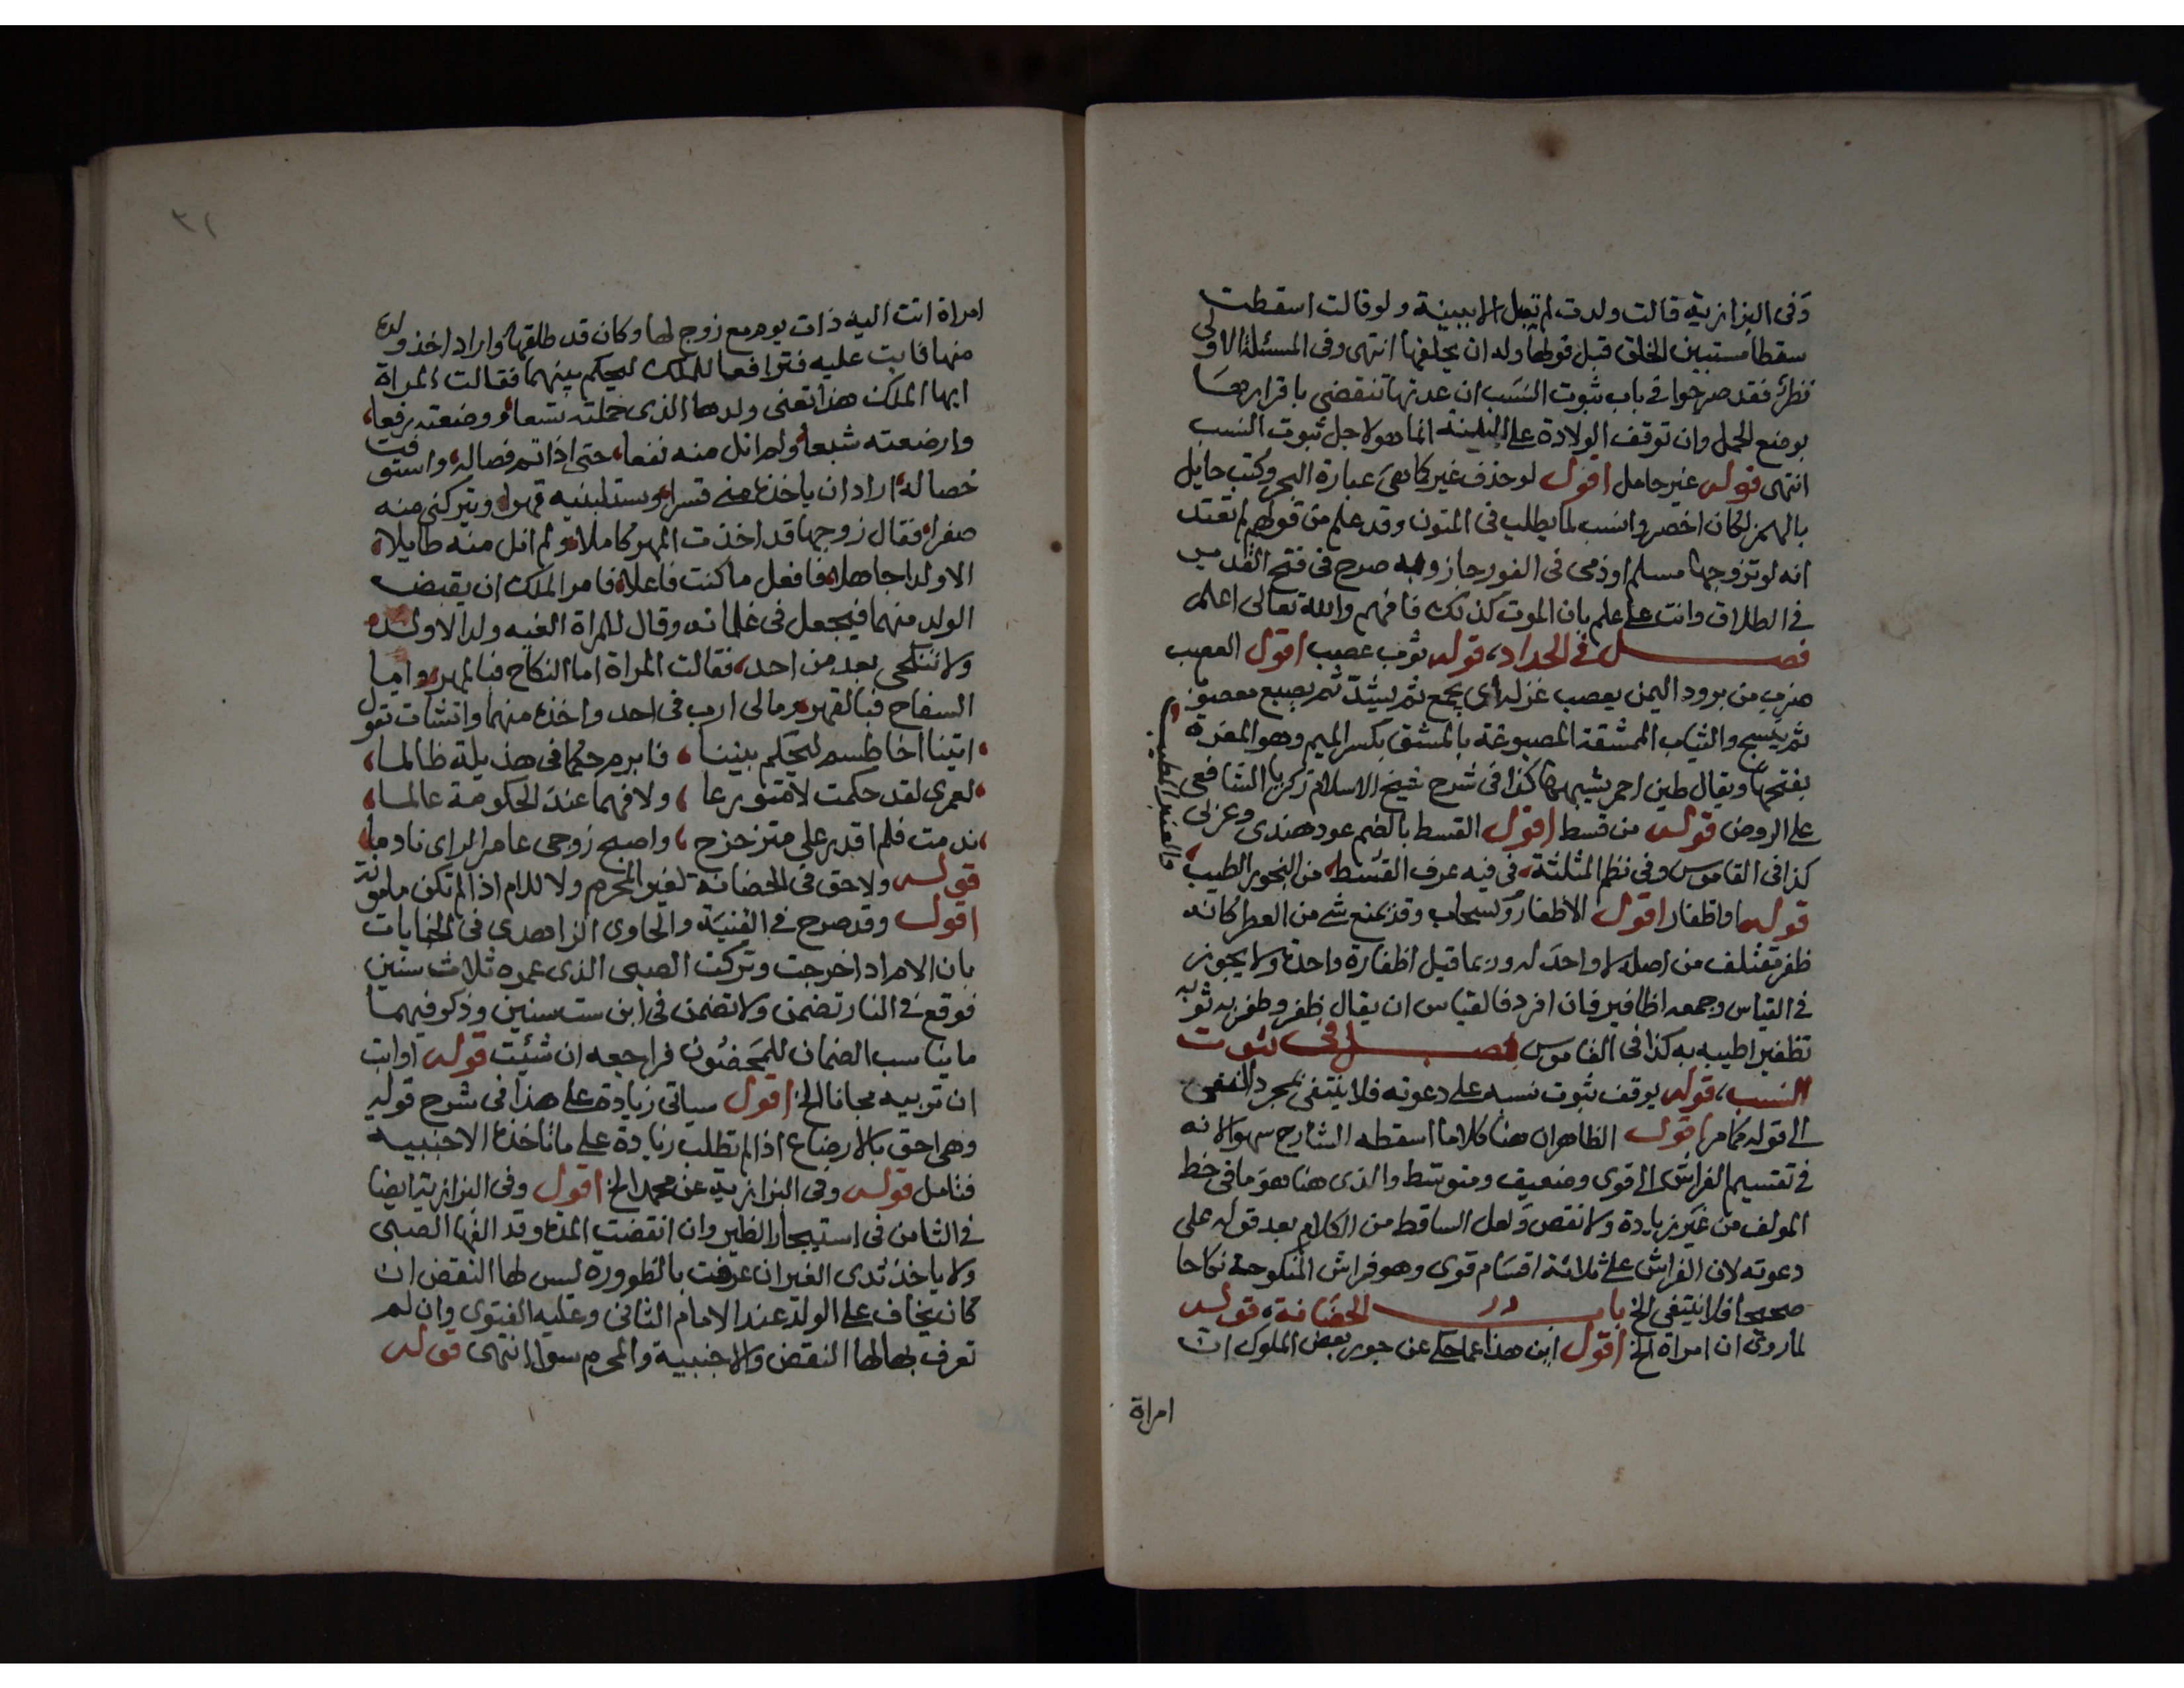 وفى البزازية قالت ولدت لم تقبل الا ببينة ولو قالت اسقطت
سقطا مستبين الخلق قبل قولها وله ان يحلفها انتهى وفى المسئلة الاولى
نظر فقد صرحوا فى باب ثبوت النسب ان عدتها تنقضى باقرارها
بوضع الحمل وان توقف الولادة على البينة انما هو لاجل ثبوت النسب
انتهى قوله غير حامل اقول لو حذف غير كما هى عبارة البحر وكتب حايل
بالهمز لكان اخصر وانسب لما يطلب فى المتون وقد علم من قولهم لم تعتد
انه لو تزوجها مسلم او ذمى فى الفور جاز وبه صرح فى فتح القدير
فى الطلاق وانت على علم بان الموت كذلك فافهم والله تعالى اعلم
فصل فى الحداد، قوله ثوب عصب اقول العصب
ضرب من برود اليمن يعصب غزله اى يجمع ثم يشد ثم يصبغ معصوبا
ثم ينسج والثياب الممشقة المصبوغة بالمشق بكسر الميم وهو المغرة
بفتحها ويقال طين احمر يشبهها كذا فى شرح شيخ الاسلام زكريا الشافعى
على الروض قوله من قسط اقول القسط بالضم عود هندى وعربى
كذا فى القاموس وفى نظم المثلثة، فى فيه عرف القسط، من البخور الطيب
والعنبر المطيب
قوله او اظفار اقول الاظفار كسحاب وقد يمنع شى من العطر كانه
ظفر مقتلف من اصله لا واحد له وربما قيل اظفارة واحدة ولا يجوز
فى القياس وجمعه اظافير فان افرد فالقياس ان يقال ظفر وظفر به ثوبه
تظفيرا طيبه به كذا فى القاموس فصل فى ثبوت
النسب، قوله يوقف ثبوت نسبه على دعوته فلا ينتفى بمجرد النفى
الى قوله كما مر اقول الظاهر ان هنا كلاما اسقطه الشارح سهوا لانه
فى تقسيم الفراش الى قوى وضعيف ومتوسط والذى هنا هو ما فى خط
المولف من غير زيادة ولا نقص ولعل الساقط من الكلام بعد قوله على
دعوته لان الفراش على ثلاثة اقسام قوى وهو فراش المنكوحة نكاحا
صحيحا فلا ينتفى الخ باب الحضانة، قوله
لما روى ان امراة الخ اقول اين هذا مما حكى عن جور بعض الملوك ان
امراة
٣١
امراة اتت اليه ذات يوم مع زوج لها وكان قد طلقها واراد اخذ ولده
منها فابت عليه فترافعا للملك ليحكم بينهما فقالت المراة
ايها الملك هذا تعنى ولدها الذى حملته تسعا، ووضعته رفعا،
وارضعته شبعا، ولم انل منه نفعا، حتى اذا تم فصاله، واستوفت
خصاله، اراد ان ياخذه منى قسرا، ويستلبنيه قهرا، ويتركنى منه
صفرا، فقال زوجها قد اخذت المهر كاملا، ولم انل منه طايلا،
الا ولدا جاهلا، فافعل ما كنت فاعلا، فامر الملك ان يقبض
الولد منهما فيجعل فى غلمانه وقال للمراة ابغيه ولدا الا ولده
ولا تنكحى بعد من احد، فقالت المراة اما النكاح فبالمهر، واما
السفاح فبالقهر، ومالى ارب فى احد واخذه منهما وانشات تقول
، اتينا اخا طسم ليحكم بيننا ، فابرم حكما فى هذيلة ظالما،
، لعمرى لقد حكمت لا متورعا ، ولا فهما عند الحكومة عالما،
، ندمت فلم اقدر على متزحزح ، واصبح زوجى عامر الراى نادما،
قوله ولا حق فى الحضانة لغير المحرم ولا للام اذا لم تكن مامونة
اقول وقد صرح فى القنية والحاوى الزاهدى فى الجنايات
بان الام اذا خرجت وتركت الصبى الذى عمره ثلاث سنين
فوقع فى النار تضمن ولا تضمن فى ابن ست سنين وذكر فيهما
ما يناسب الضمان للمحضون فراجعه ان شئت قوله او ابت
ان تربيه مجانا الخ اقول سياتى زيادة على هذا فى شرح قوله
وهى احق بالارضاع اذا لم تطلب زيادة على ما تاخذه الاجنبيه
فتامل قوله وفى البزازية عن محمد الخ اقول وفى البزازية ايضا
فى الثامن فى استيجار الظير وان انقضت المدة وقد الفها الصبى
ولا ياخذ ثدى الغير ان عرفت بالظوورة ليس لها النقض ان
كان يخاف على الولد عند الامام الثانى وعليه الفتوى وان لم
تعرف بها لها النقض والاجنبية والمحرم سوا انتهى قوله